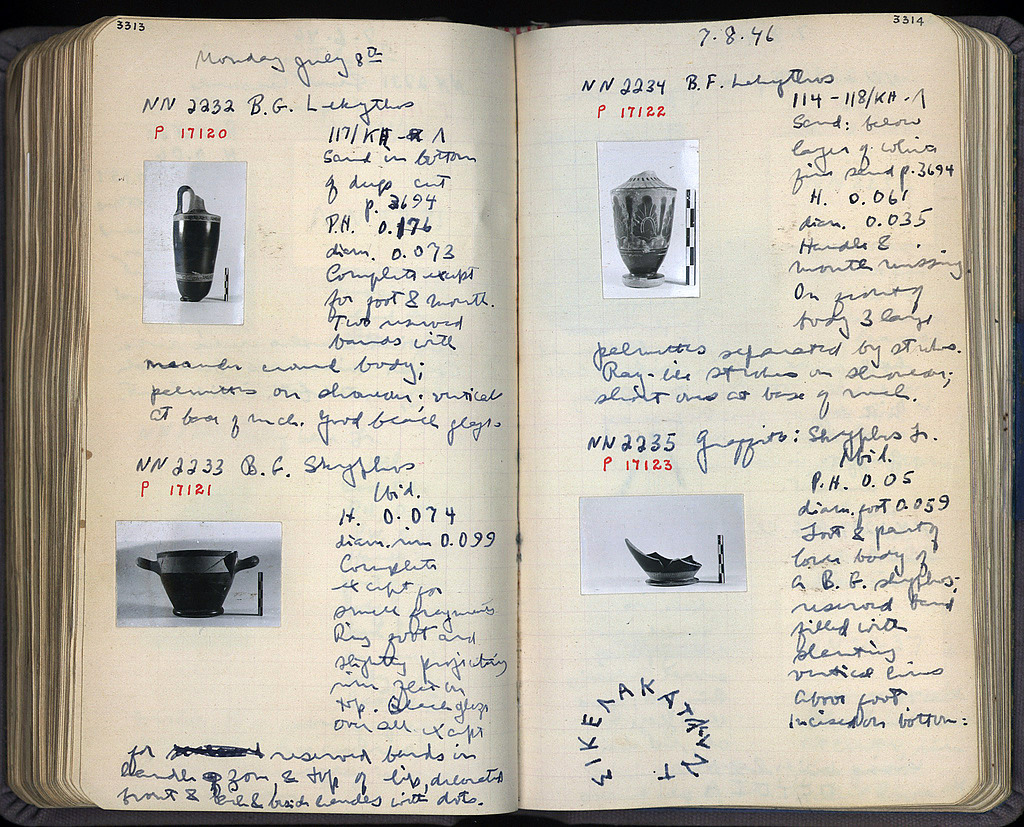 3313
Monday July 8th
NN 2232 B.G. Lekythos
P 17120
117/KH - Λ
Sand in bottom
of deep cut
p. 3694
P.H. 0.176
diam. 0.073
Complete except
for foot & mouth.
Two reserved
bands with
meander around body;
palmettes on shoulder; vertical
at base of neck. Good black glaze
NN 2233 B.G. Skyphos
P 17121
Ibid.
H. 0.074
diam. rim 0.099
Complete
except for
small fragments
Ring foot and
slightly projecting
rim flat on
top. Black glaze
over all except
for reserved bands in
handle zone & top of lip, decorated
front & back & beside handles with dots.
3314
7.8.46
NN 2234 B.F. Lekythos
P 17122
114-118/KH-Λ
Sand: below
layer of white
fine sand p. 3694
H. 0.061
diam. 0.035
Handle &
mouth missing.
On front of
body 3 large
palmettes separated by strokes.
Ray-like strokes on shoulder;
short ones at base of neck.
NN 2235 Graffito: Skyphos Fr.
P 17123
Ibid.
P.H. 0.05
diam. foot 0.059
Foot & part of
lower body of
a B.G. skyphos;
reserved band
filled with
slanting
vertical lines
above foot.
Incised on bottom: